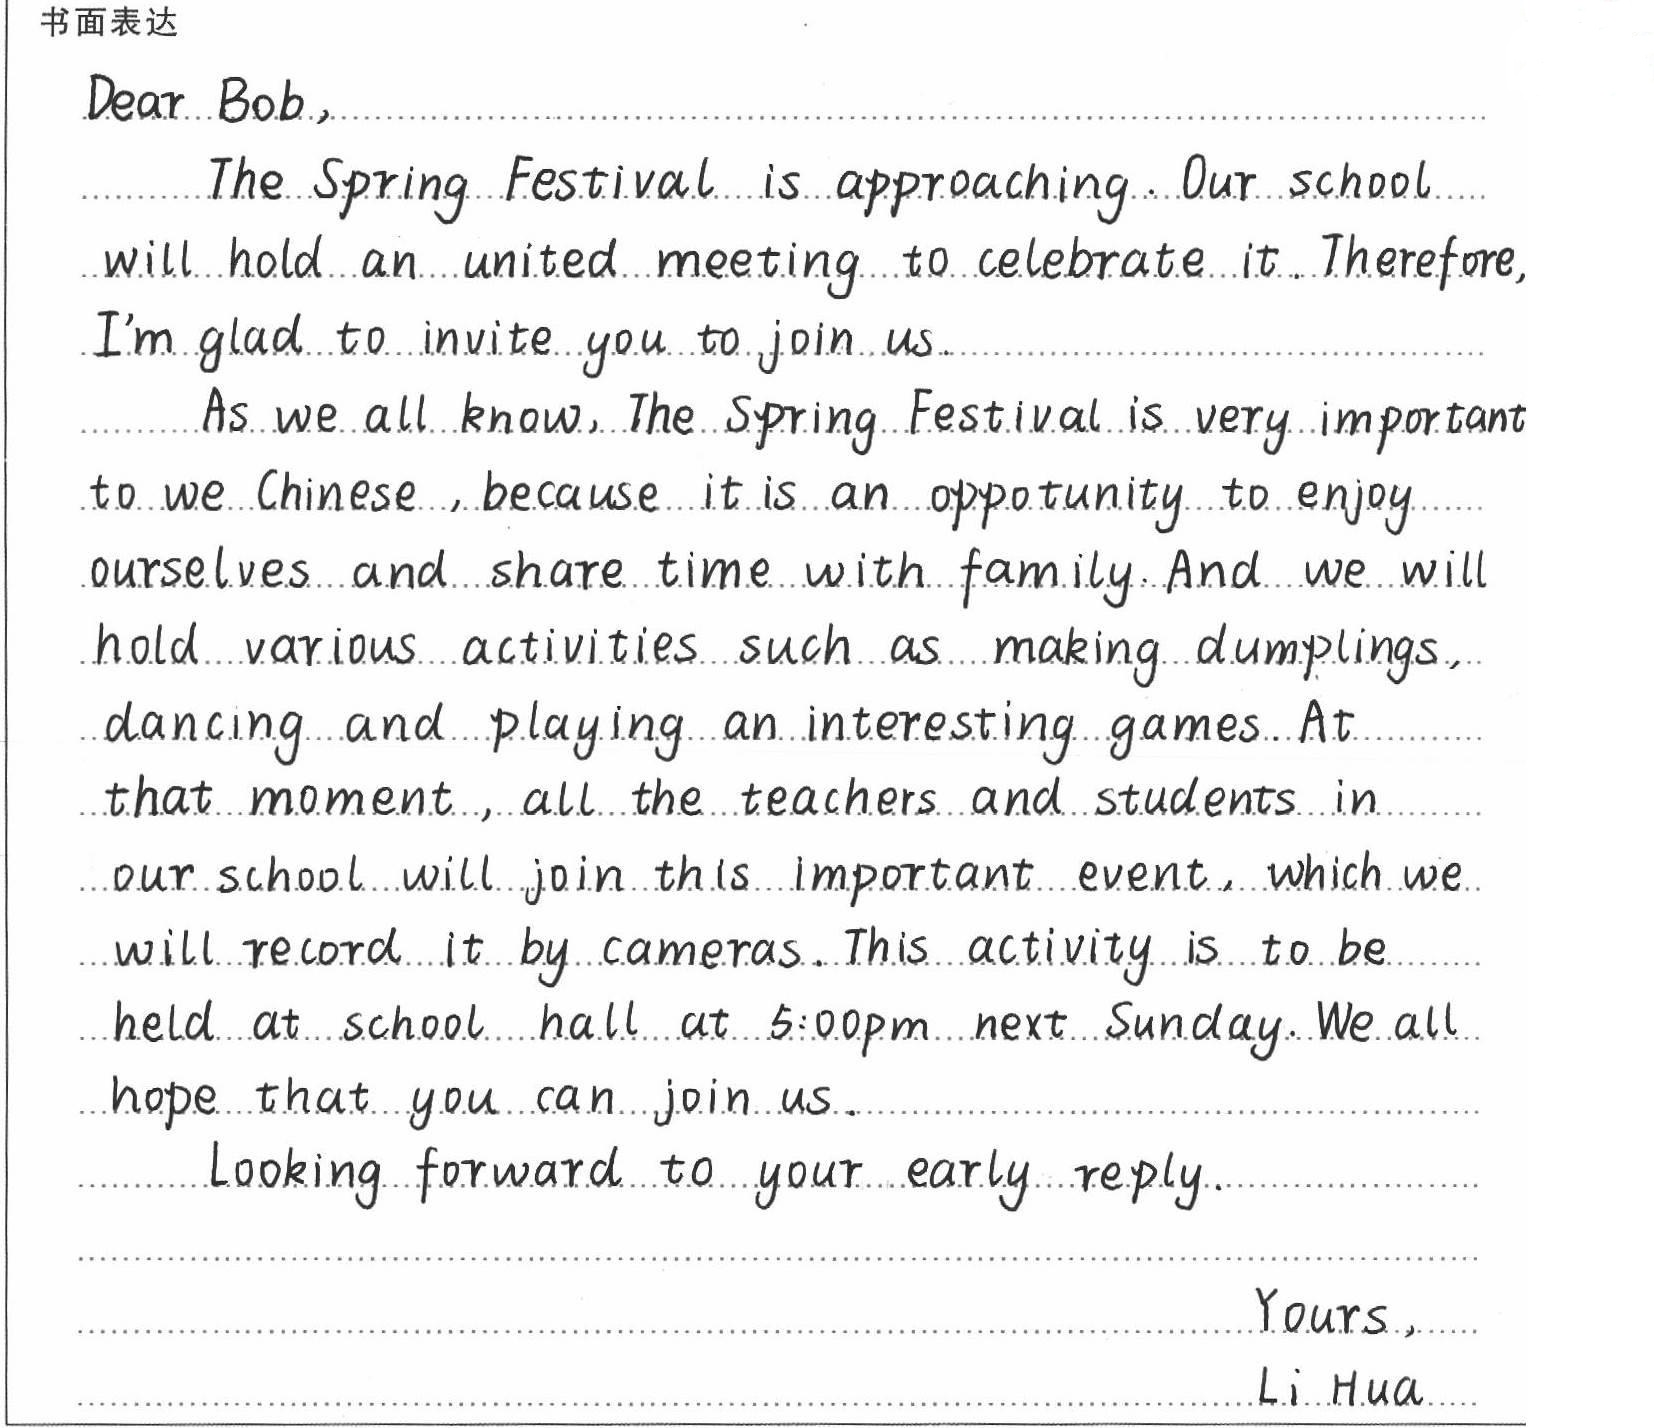 书面表达
Dear Bob,
The Spring Festival is approaching. Our school
will hold an united meeting to celebrate it. Therefore,
I'm glad to invite you to join us.
As we all know, The Spring Festival is very important
to we Chinese, because it is an oppotunity to enjoy
ourselves and share time with family. And we will
hold various activities such as making dumplings,
dancing and playing an interesting games. At
that moment, all the teachers and students in
our school will join this important event, which we
will record it by cameras. This activity is to be
held at school hall at 5:00pm next Sunday. We all
hope that you can join us.
Looking forward to your early reply.
Yours,
Li Hua